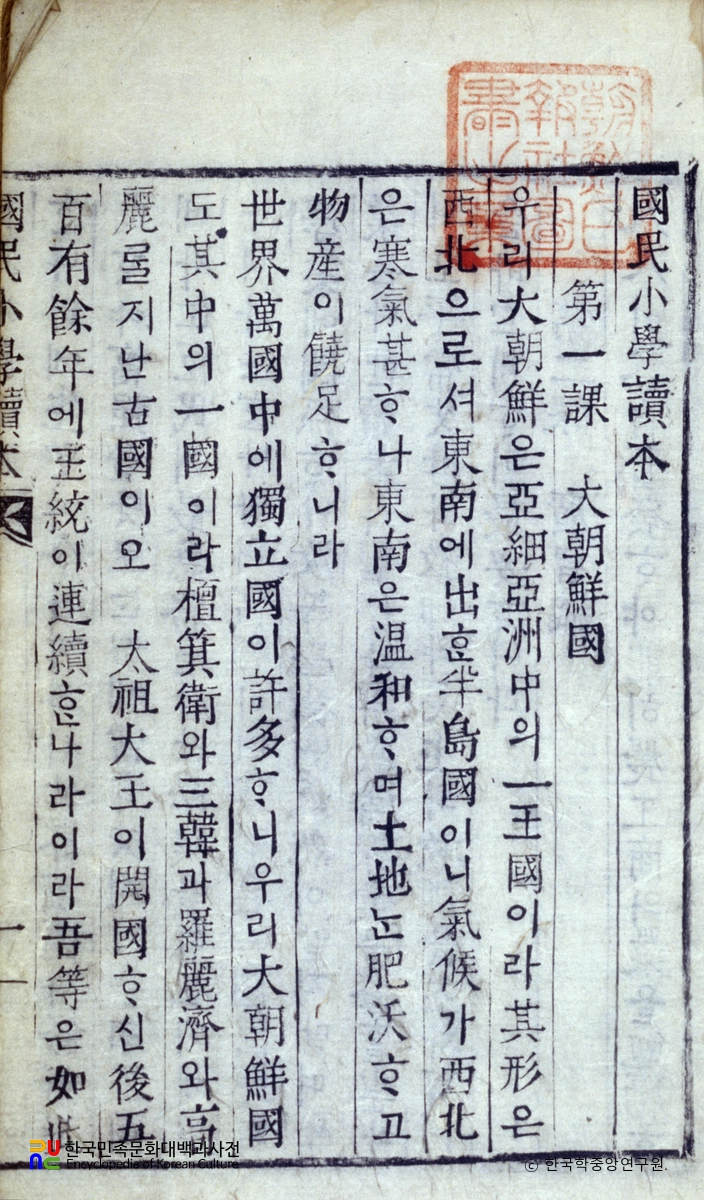 國民小學讀本
第一課 大朝鮮國
우리大朝鮮은亞細亞洲中의一王國이라其形은
西北으로셔東南에出ᄒᆞᆫ半島國이니氣候가西北
은寒氣甚ᄒᆞ나東南은温和ᄒᆞ며土地ᄂᆞᆫ肥沃ᄒᆞ고
物産이饒足ᄒᆞ니라
世界萬國中에獨立國이許多ᄒᆞ니우리大朝鮮國
도其中의一國이라檀箕衛와三韓과羅麗濟와高
麗롤지난古國이오 太祖大王이開國ᄒᆞ신後五
百有餘年에王統이連續ᄒᆞᆫ나라이라吾等은如此
國民小學讀本 一
朝鮮日
報社圖
書之章
한국민족문화대백과사전
Encyclopedia of Korean Culture
© 한국학중앙연구원.